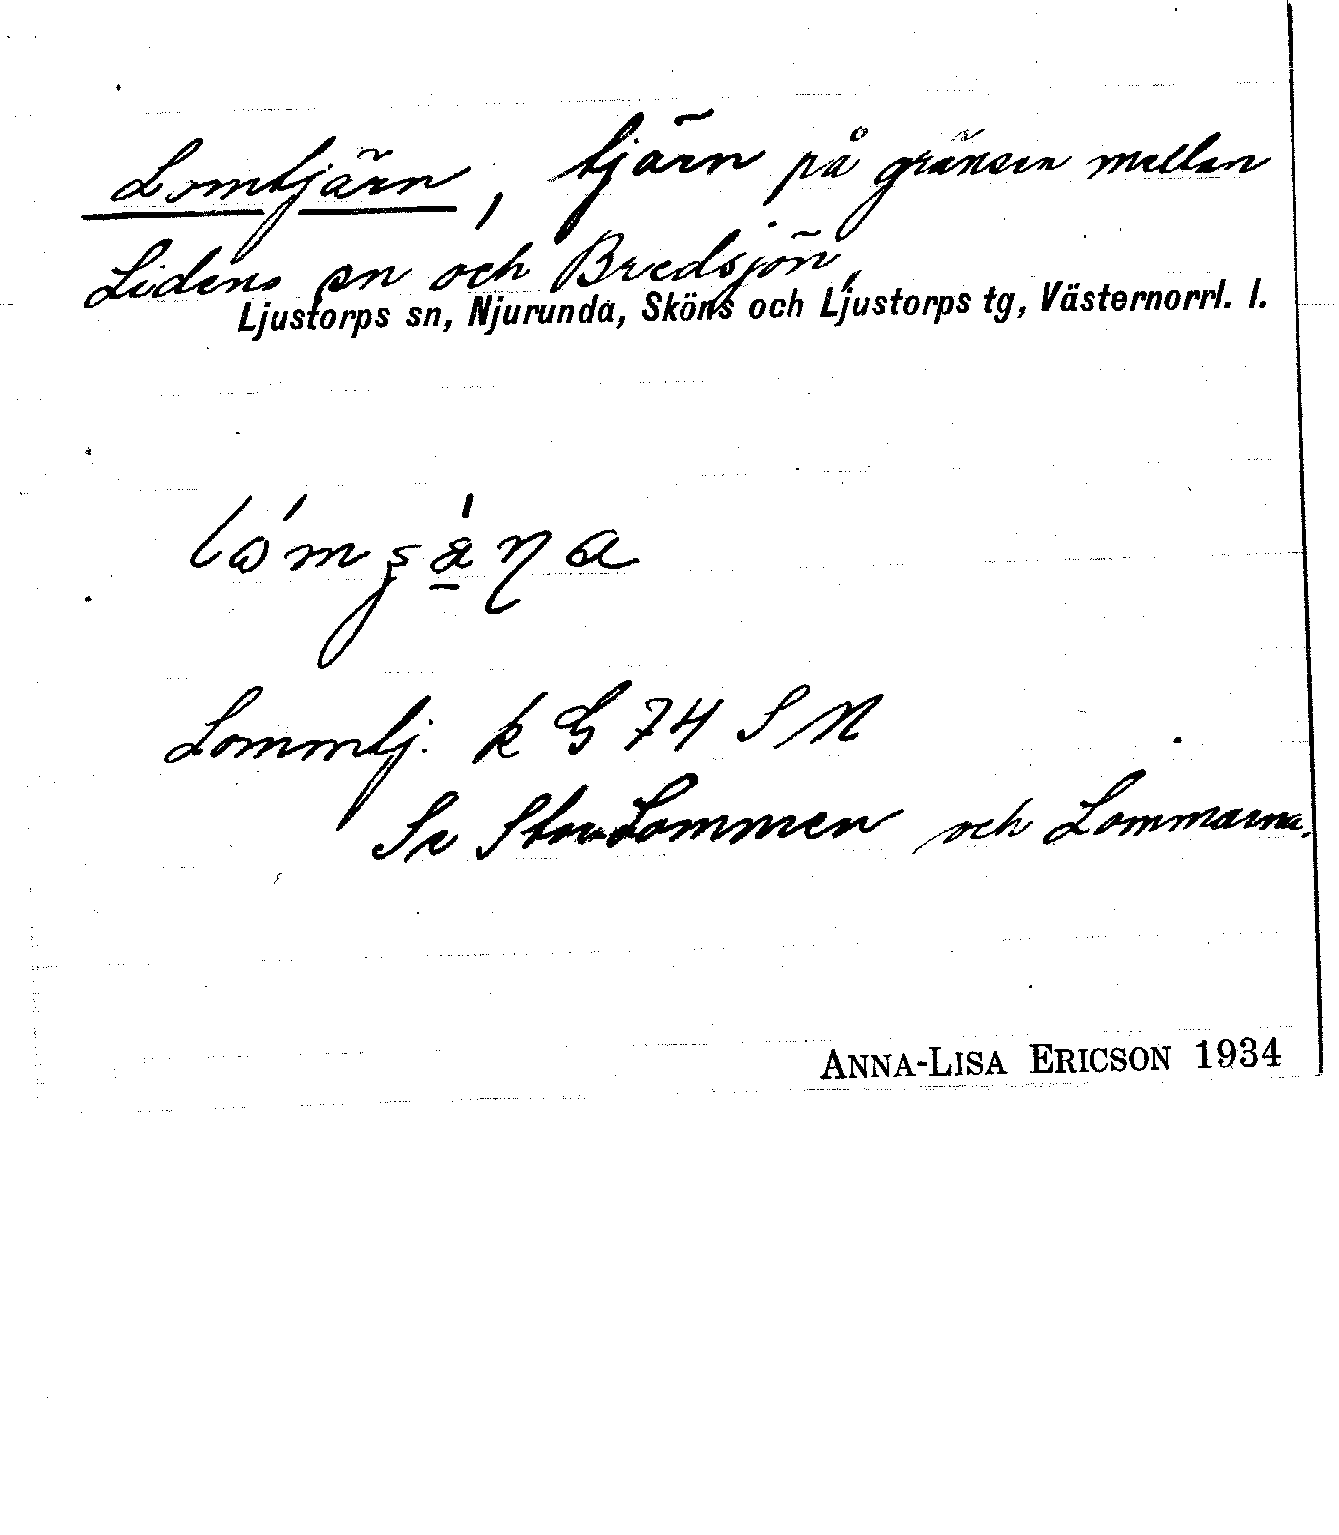 Lomtjärn, tjärn på gränsen mellan
Lidens sn och Bredsjön,
Ljustorps sn, Njurunda, Sköns och Ljustorps tg, Västernorrl. l.
Lommtj. k G 74 S N
Se Stor-Lommen och Lommarna.
ANNA-LISA ERICSON 1934